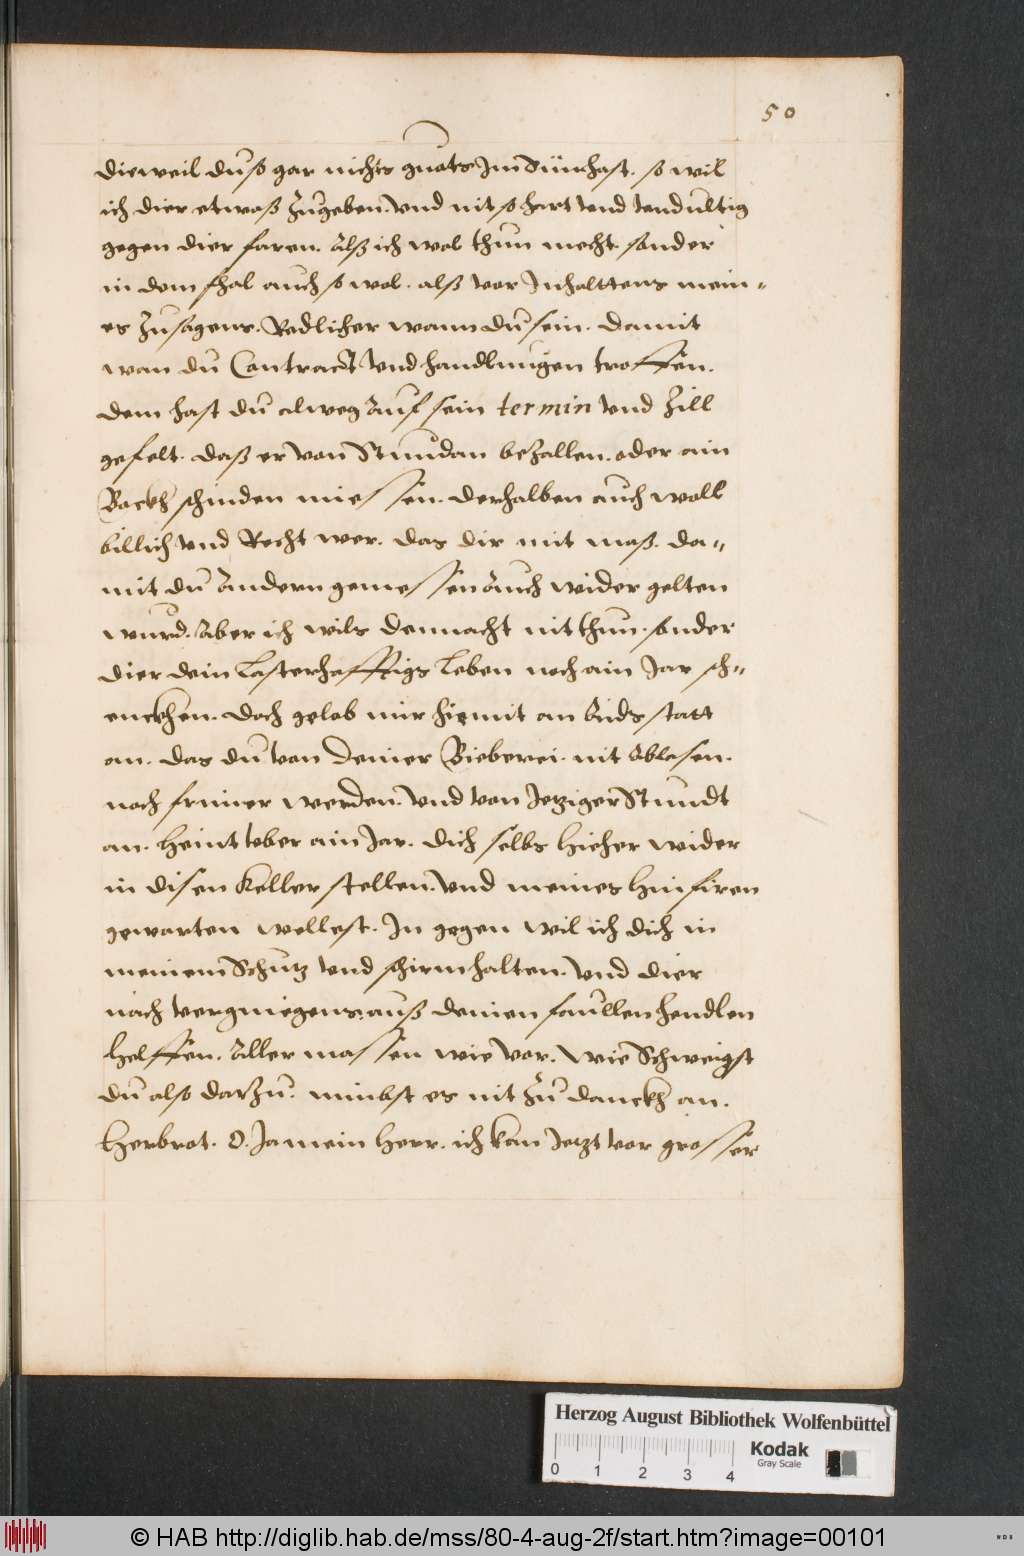 50
dieweil du so gar nichts guets Im Sünn hast. so wil
ich dier etwaß Zugeben. vnd nit so hart vnd vndultig
gegen dier faren. Alß ich wol thun mecht. sonder
in dem fhal auch so wol. alß vor Inhalttens mein-
es Zusagens. Redlicher wann du sein. damit
wan du Contract vnd handlungen troffen.
dem hast du alweg Auf sein termin vnd Zill
gefelt. daß er von Stundan bezallen. oder ain
Backh schinden miessen. derhalben auch woll
billich vnd Recht wer. das dir mit maß. da-
mit du Andern gemessen Auch wider gelten
wurd. Aber ich wils dennacht nit thun. sonder
dier dein Lasterhafftigs Leben noch ain Jar sch-
enckhen. doch gelob mir hiemit an Aids statt
an. das du von deiner Bieberei. nit Ablasen.
noch frimer werden. vnd von Jetziger Stundt
an. heint vber ain Jar. dich selbs hieher wider
in disen Keller stellen. vnd meines hinfiren
gewarten wellest. In gegen wil ich dich in
meinem Schutz vnd schirm halten. vnd dier
nach vergniegens. auß deinen faullen hendlen
helffen. Aller massen wie vor. wie Schweigst
du also darzu. nimbst es nit Zu danckh an.
Herbrot. O. Ja mein Herr. ich kan Jetzt vor grosser
Herzog August Bibliothek Wolfenbüttel
0 1 2 3 4
Kodak
Gray Scale
© HAB http://diglib.hab.de/mss/80-4-aug-2f/start.htm?image=00101